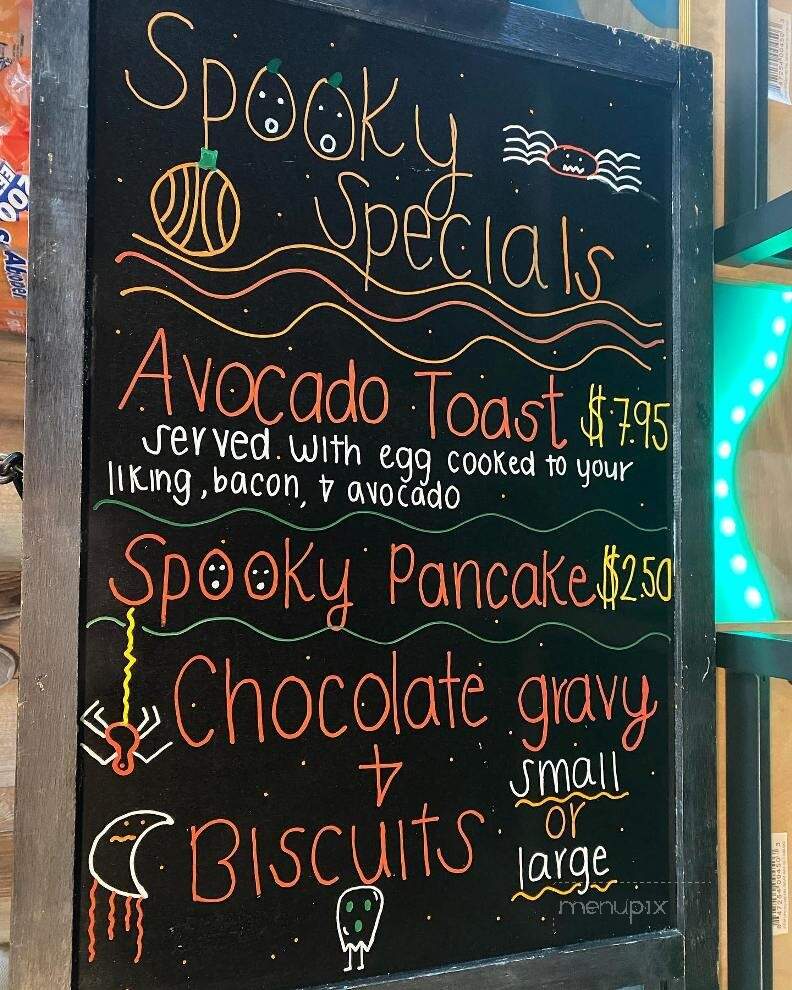 Spooky
Specials
Avocado Toast $7.95
served with egg cooked to your
liking, bacon, & avocado
Spooky Pancake $2.50
Chocolate gravy
&
Biscuits
small
or
large
menupix